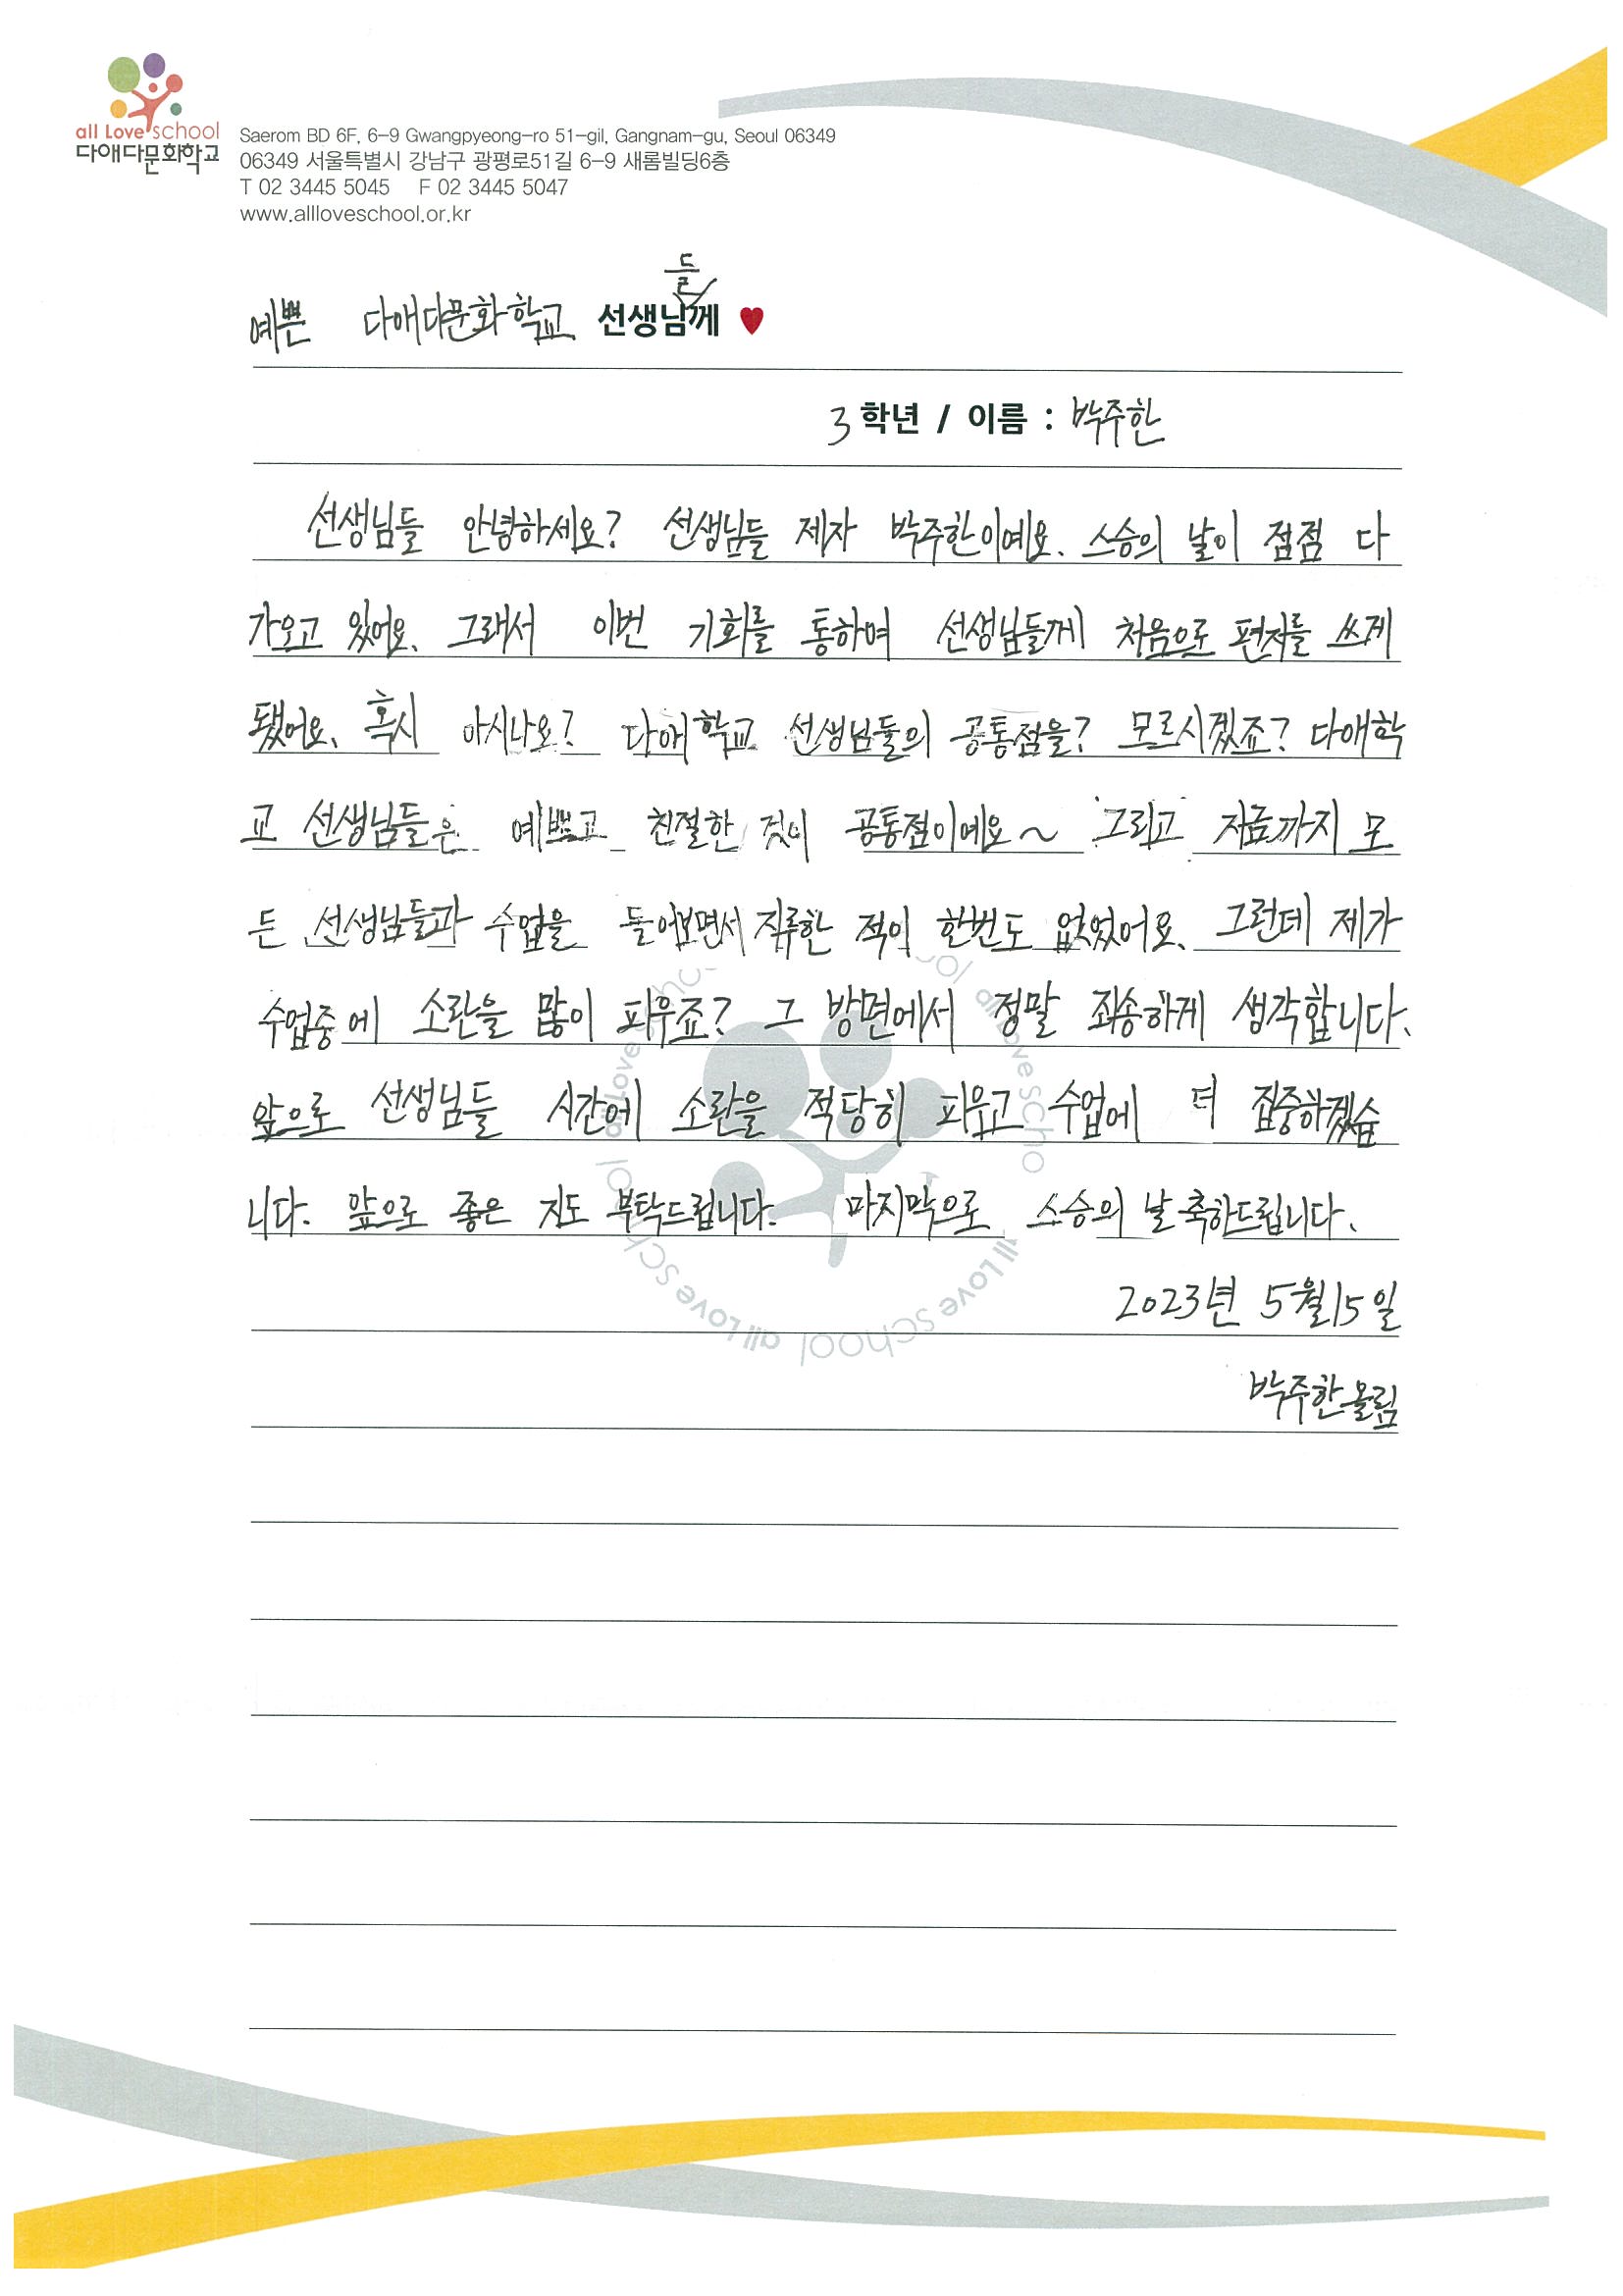 all Love school
다애다문화학교
Saerom BD 6F, 6-9 Gwangpyeong-ro 51-gil, Gangnam-gu, Seoul 06349
06349 서울특별시 강남구 광평로51길 6-9 새롬빌딩6층
T 02 3445 5045 F 02 3445 5047
www.allloveschool.or.kr
들
예쁜 다애다문화학교 선생님께 ♥
3 학년 / 이름 : 박주한
선생님들 안녕하세요? 선생님들 제자 박주한이예요. 스승의 날이 점점 다
가오고 있어요. 그래서 이번 기회를 통하여 선생님들께 처음으로 편지를 쓰게
됐어요. 혹시 아시나요? 다애학교 선생님들의 공통점을? 모르시겠죠? 다애학
교 선생님들은 예쁘고 친절한 것이 공통점이예요~ 그리고 지금까지 모
든 선생님들과 수업을 들어보면서 지루한 적이 한번도 없었어요. 그런데 제가
수업중에 소란을 많이 피우죠? 그 방면에서 정말 죄송하게 생각합니다.
앞으로 선생님들 시간에 소란을 적당히 피우고 수업에 더 집중하겠습
니다. 앞으로 좋은 지도 부탁드립니다. 마지막으로 스승의 날 축하드립니다.
2023년 5월 15일
박주한 올림
all Love school all Love school all Love school all Love school